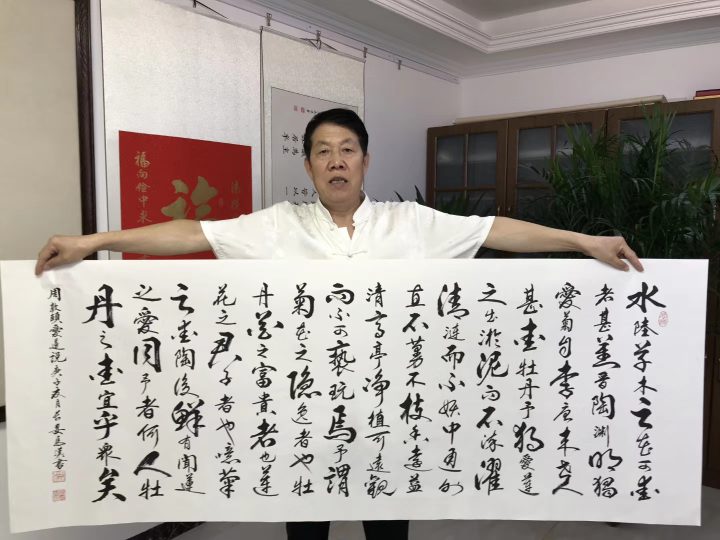 水陸草木之花可愛
者甚蕃晉陶淵明獨
愛菊自李唐来世人
甚愛牡丹予獨愛蓮
之出淤泥而不染濯
清漣而不妖中通外
直不蔓不枝香遠益
清亭亭净植可遠觀
而不可褻玩焉予謂
菊花之隐逸者也牡
丹花之富貴者也蓮
花之君子者也噫菊
之愛陶後鮮有聞蓮
之愛同予者何人牡
丹之愛宜乎衆矣
周敦頤愛蓮説庚子春月吉姜书
福向俭中来